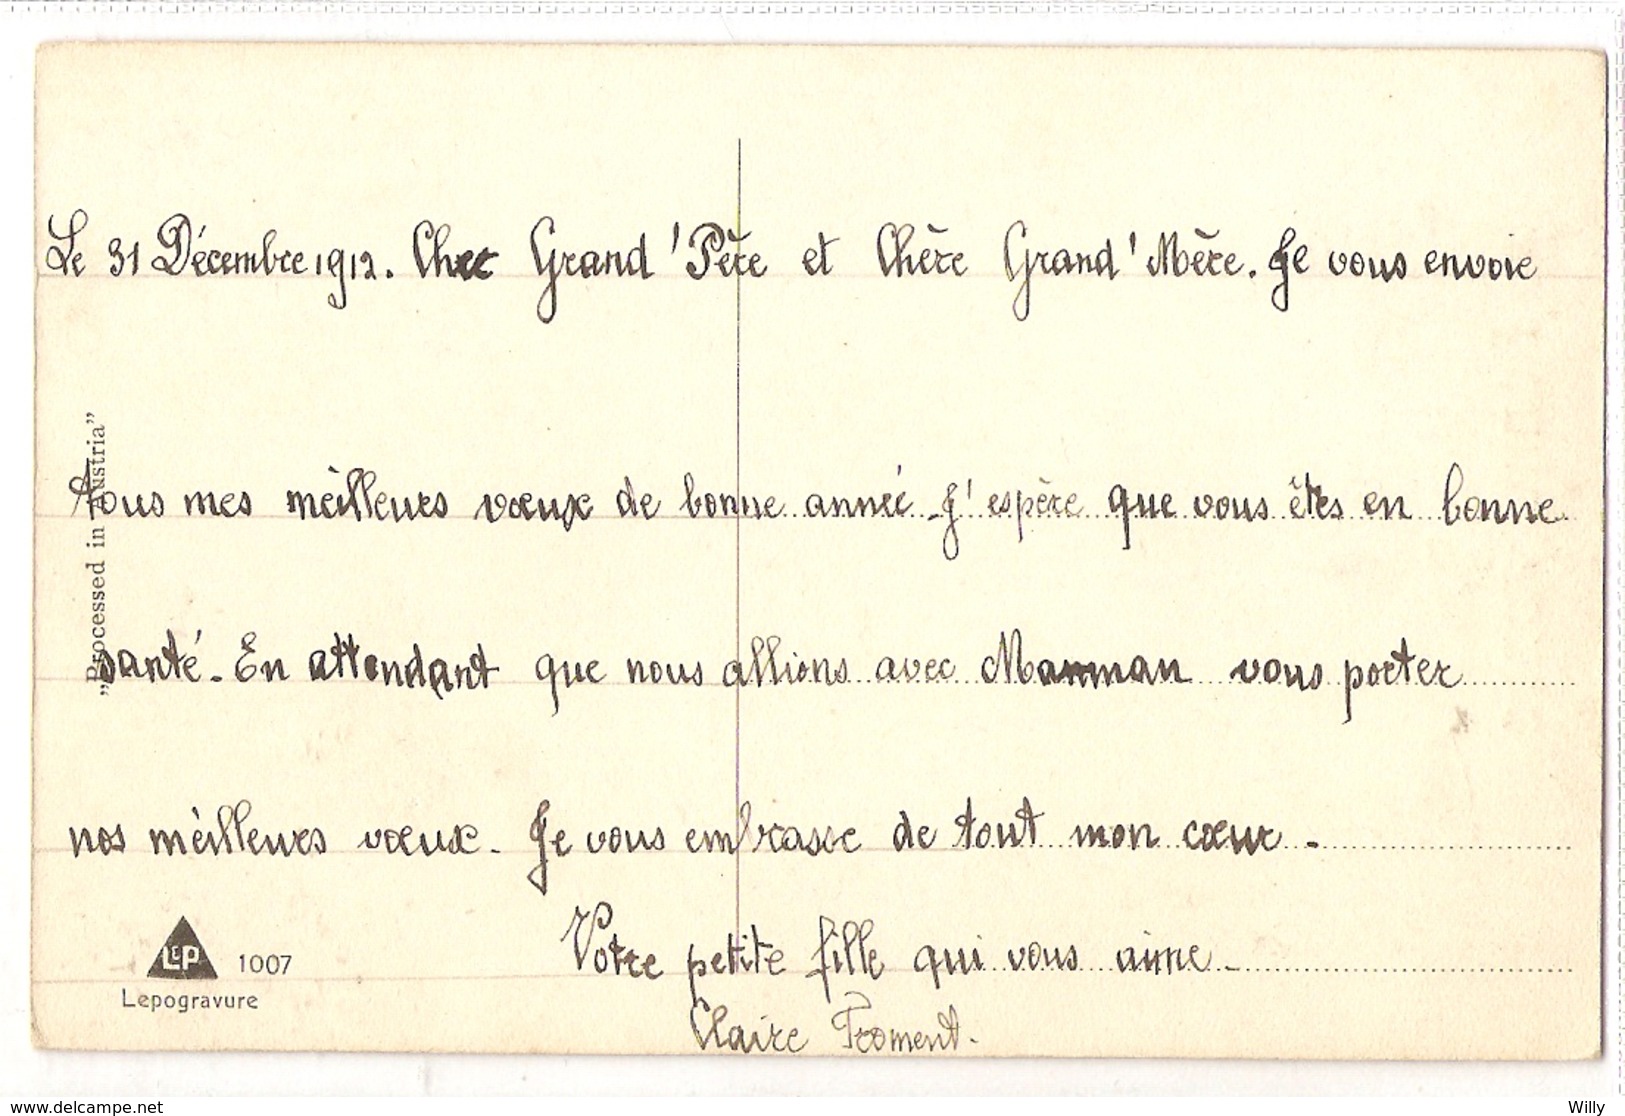 Le 31 Décembre 1912. Cher Grand'Père et Chère Grand'Mère. Je vous envoie
tous mes meilleurs vœux de bonne année. J'espère que vous êtes en bonne
santé. En attendant que nous allions avec Maman vous porter
nos meilleurs vœux. Je vous embrasse de tout mon cœur.
Votre petite fille qui vous aime.
Claire Froment.
„Processed in Austria”
LEP 1007
Lepogravure
www.delcampe.net
Willy